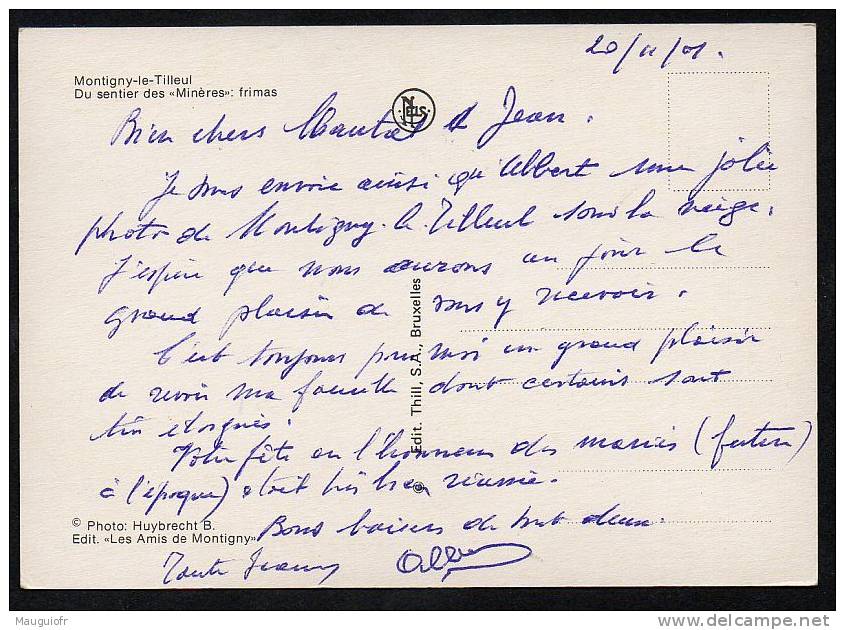 20/11/01.
Montigny-le-Tilleul
Du sentier des «Minères»: frimas
NELS
Bien chers et Jean.
Je vous envoie ainsi qu'Albert une jolie
photo de Montigny-le-Tilleul sous la neige.
J'espère que nous aurons un jour le
grand plaisir de vous y recevoir.
C'est toujours pour moi un grand plaisir
de revoir ma famille dont certains sont
très éloignés.
Votre fête en l'honneur des mariés (futurs
à l'époque) était très bien réussie.
Bons baisers de tout deux.
Tante Albert
© Edit. Thill, S.A., Bruxelles
© Photo: Huybrecht B.
Edit. «Les Amis de Montigny»
Mauguiofr
delcampe.net